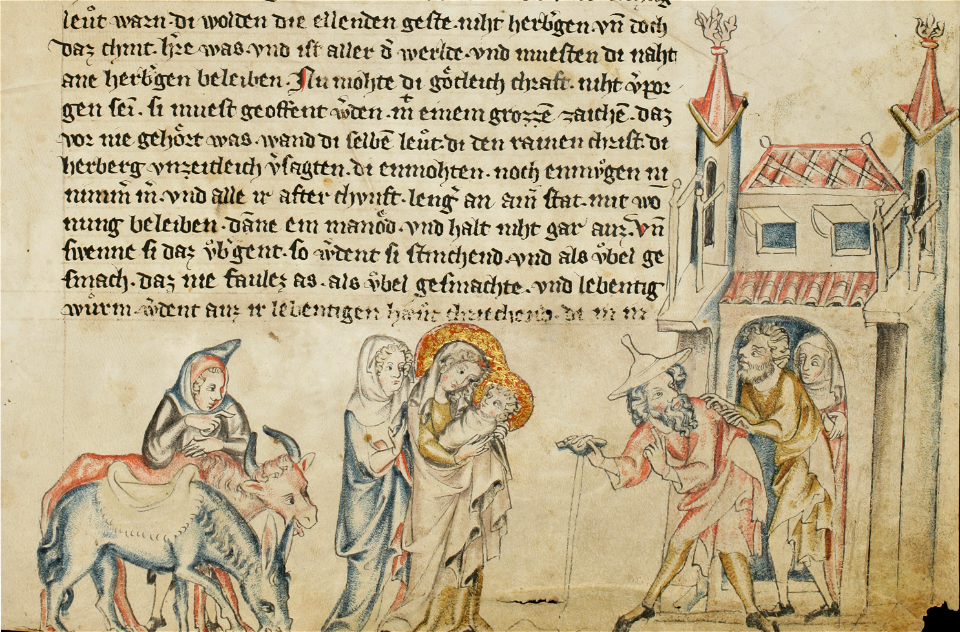 leuͦt warn · di wolden die ellenden geste · niht herbˀgen · vn̄ doch
daz chint · hˀre was · vnd ist aller dˀ werlde · vnd muesten di naht
ane herbˀgen beleiben · Nu mohte di goͤtleich chraft · niht vˀpor
gen sein · si muest geoffent wˀden · mit einem grozzē zaichē · daz
vor nie gehoͤrt was · wand di selbē leuͦt · di den rainen christ · di
herberg vnzeitleich vˀsagten · di enmohten · noch enmuͤgen ni
mmm̄ mˀ · vnd alle ir after chvnft · lengˀ an aim stat · mit wo
nung beleiben · dāne ein manoͤd · vnd halt niht gar auz · vn̄
swenne si daz vͤbˀgent · so wˀdent si stinchend · vnd als vͤbel ge
smach · daz nie faulez as · als vͤbel gesmachte · vnd lebentig
wuͤrm · wˀdent auz ir lebentigen